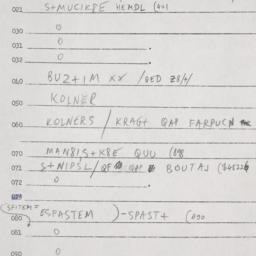 021 S+MUCIKPE HEMDL (401
030 0
031 0
032 0
040 BUZ+IM XX /QED Z8/4/
050 KOLNER
060 KOLNERS / KRAGT QAP FARPUCN
070 MAN8IS+K8E QUU (098
071 S+NIPSL/QF QAP BOUTAJ
072 0
079
SPITEM=
080 (SPASTEM )-SPAST+ (090
081 0
090 0